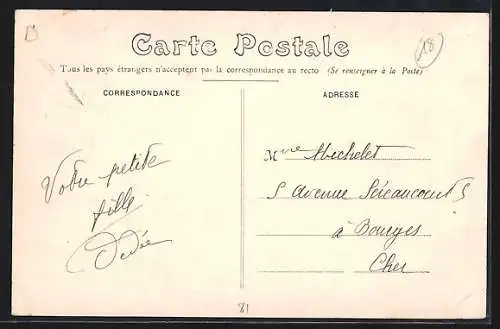 18
Carte Postale
Tous les pays étrangers n'acceptent pas la correspondance au recto (Se renseigner à la Poste)
CORRESPONDANCE
ADRESSE
Votre petite
fille
Dédée
Mme Michelet
5 Avenue Séraucourt 5
à Bourges
Cher
81